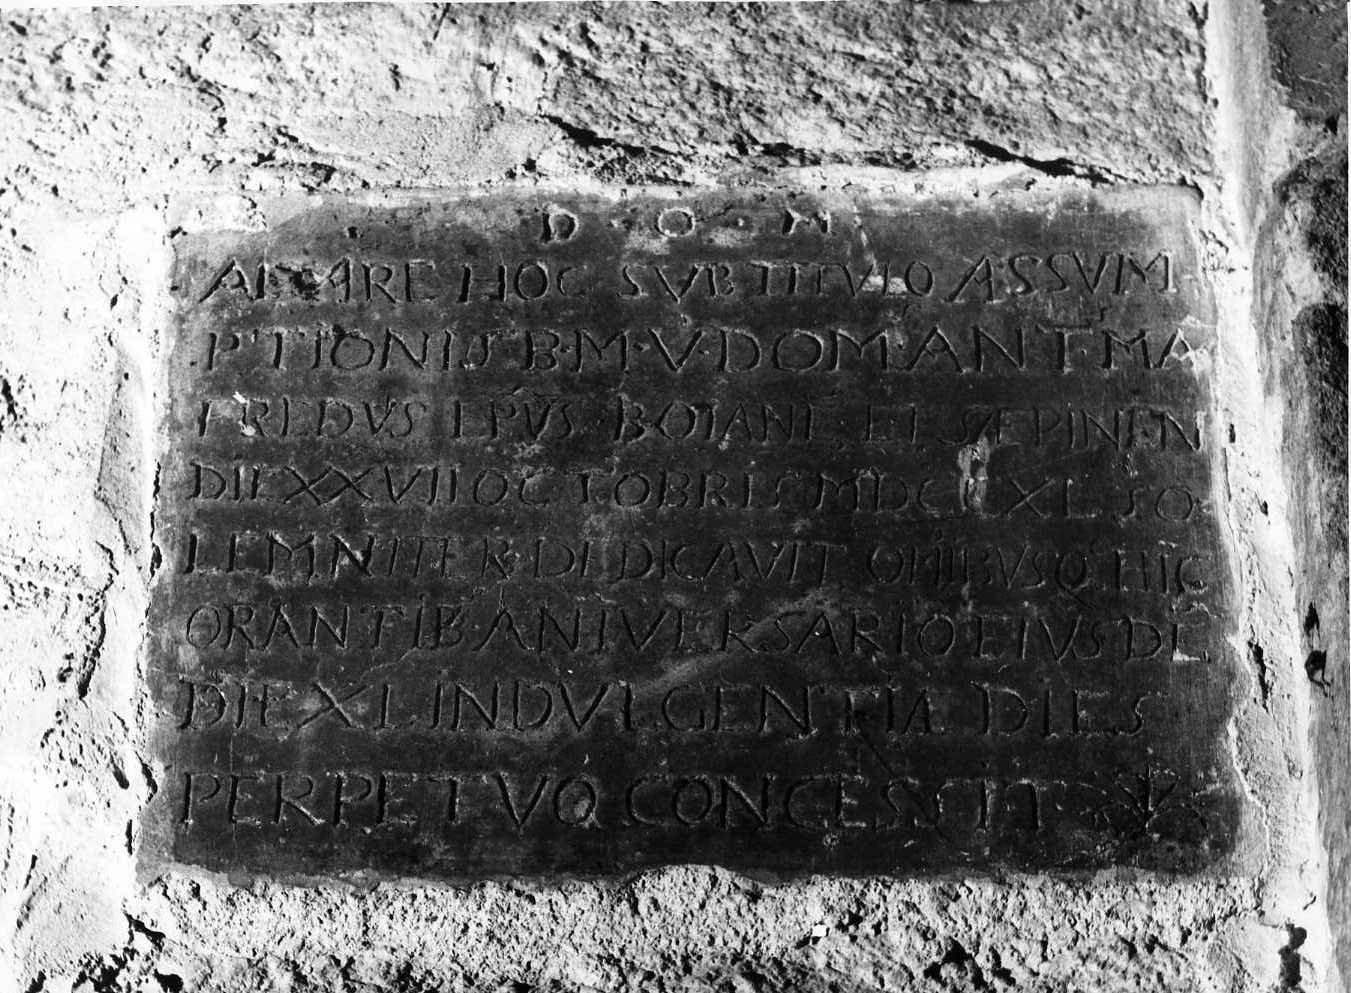 D · O · M
ALTARE HOC SVB TITVLO ASSVM
PTIONIS B·M·V·DOMANT·MA
FREDVS EPVS BOIANE ET SÆPINEN
DIE XXVII OCTOBRIS MDC XL SO
LEMNITER DEDICAVIT OMIBVSQ HIC
ORANTIB ANIVERSARIO EIVS DE
DIE XL INDVLGENTIA DIES
PERPETVO CONCESSIT